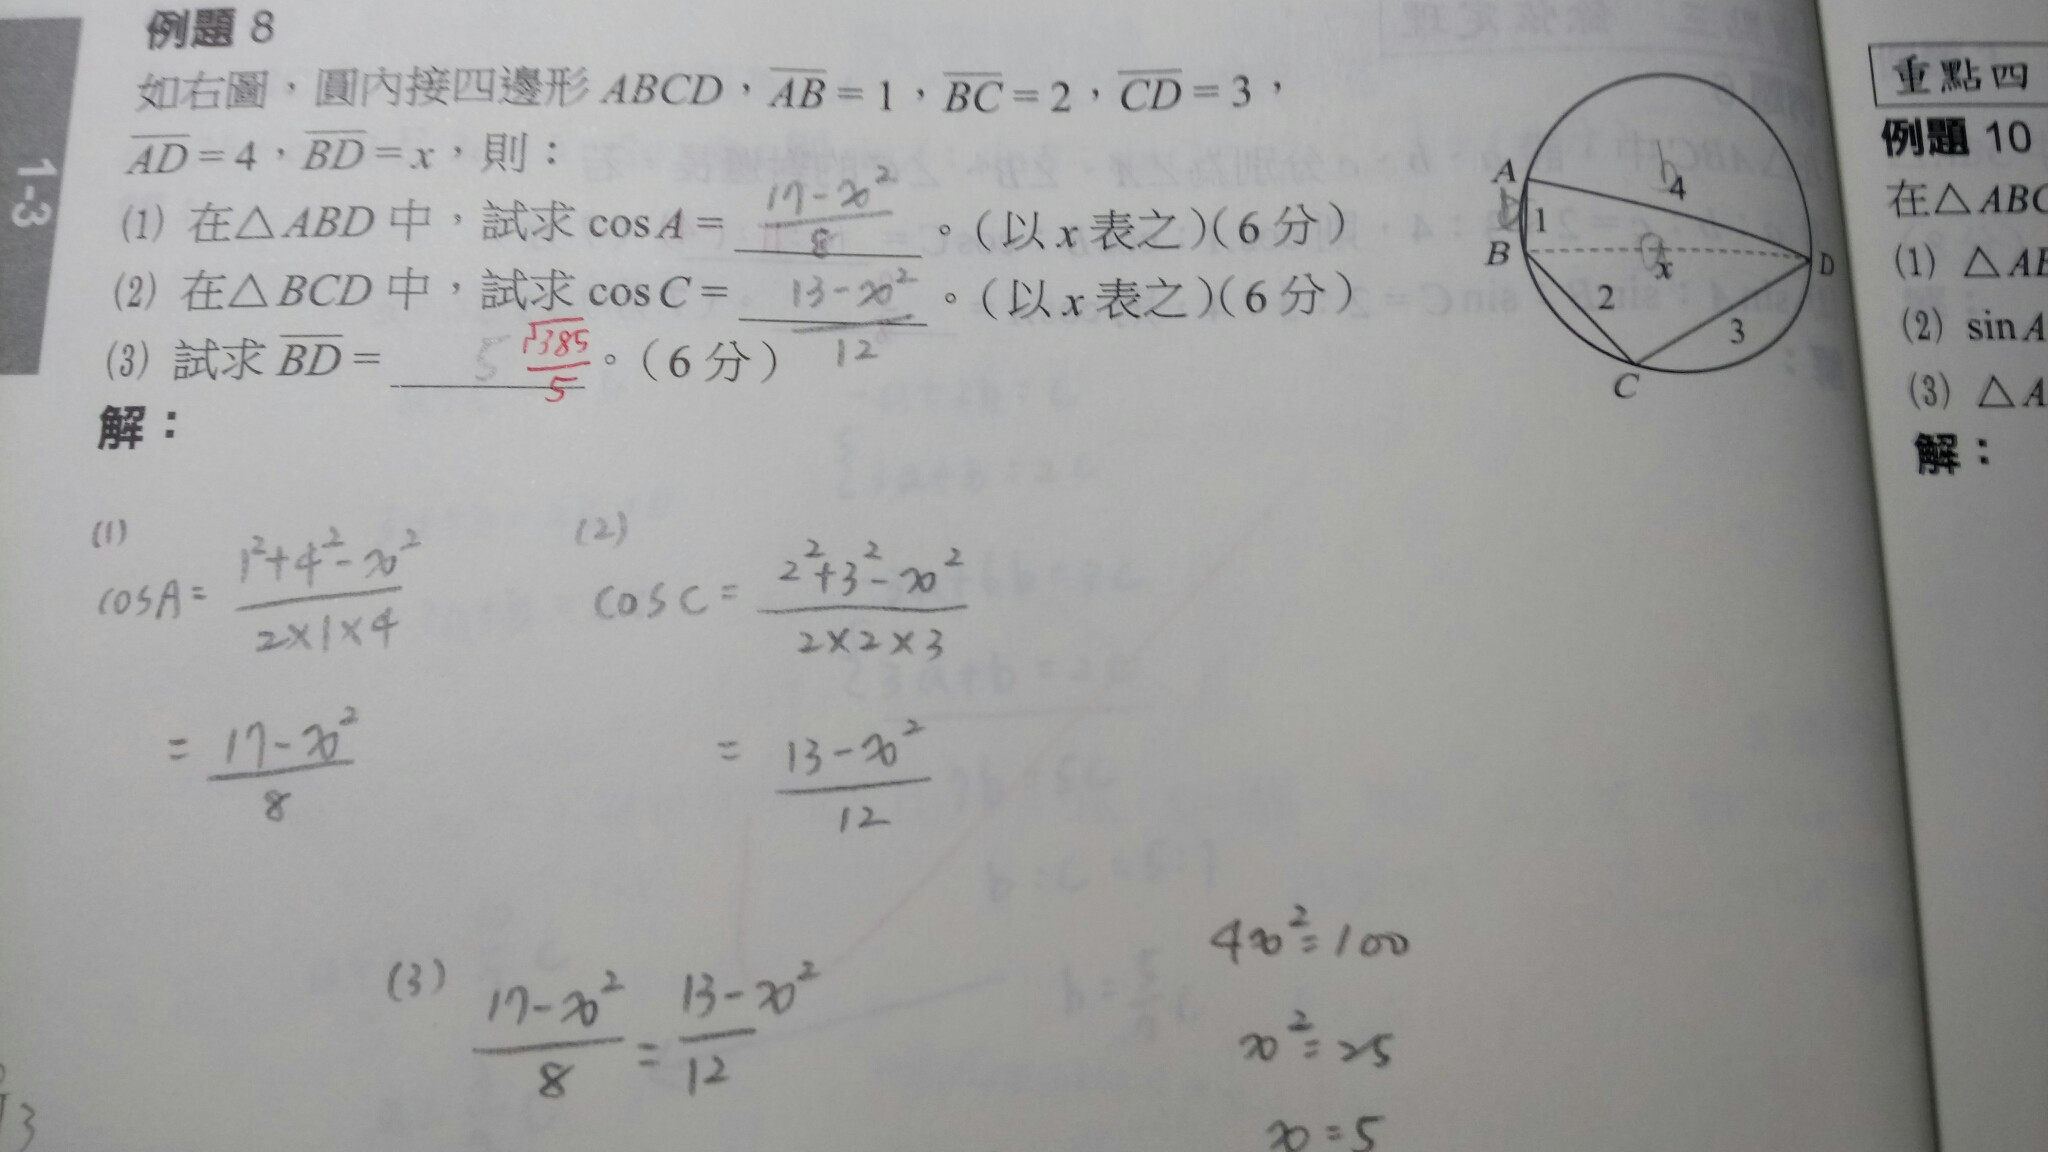 例題 8
如右圖，圓內接四邊形 ABCD，AB = 1，BC = 2，CD = 3，
AD = 4，BD = x，則：
(1) 在△ABD 中，試求 cos A = 17-x²/8 。(以 x 表之)(6 分)
(2) 在△BCD 中，試求 cos C = 13-x²/12 。(以 x 表之)(6 分)
(3) 試求 BD = 5 √385/5 。(6 分)
解：
A
B
C
D
h
4
1
x
2
3
(1)
cosA = 1²+4²-x²/2×1×4
= 17-x²/8
(2)
cos C = 2²+3²-x²/2×2×3
= 13-x²/12
(3) 17-x²/8 = 13-x²/12
4x²=100
x²=25
x=5
1-3
重點四
例題 10
在△ABC
(1) △AB
(2) sin A
(3) △A
解：